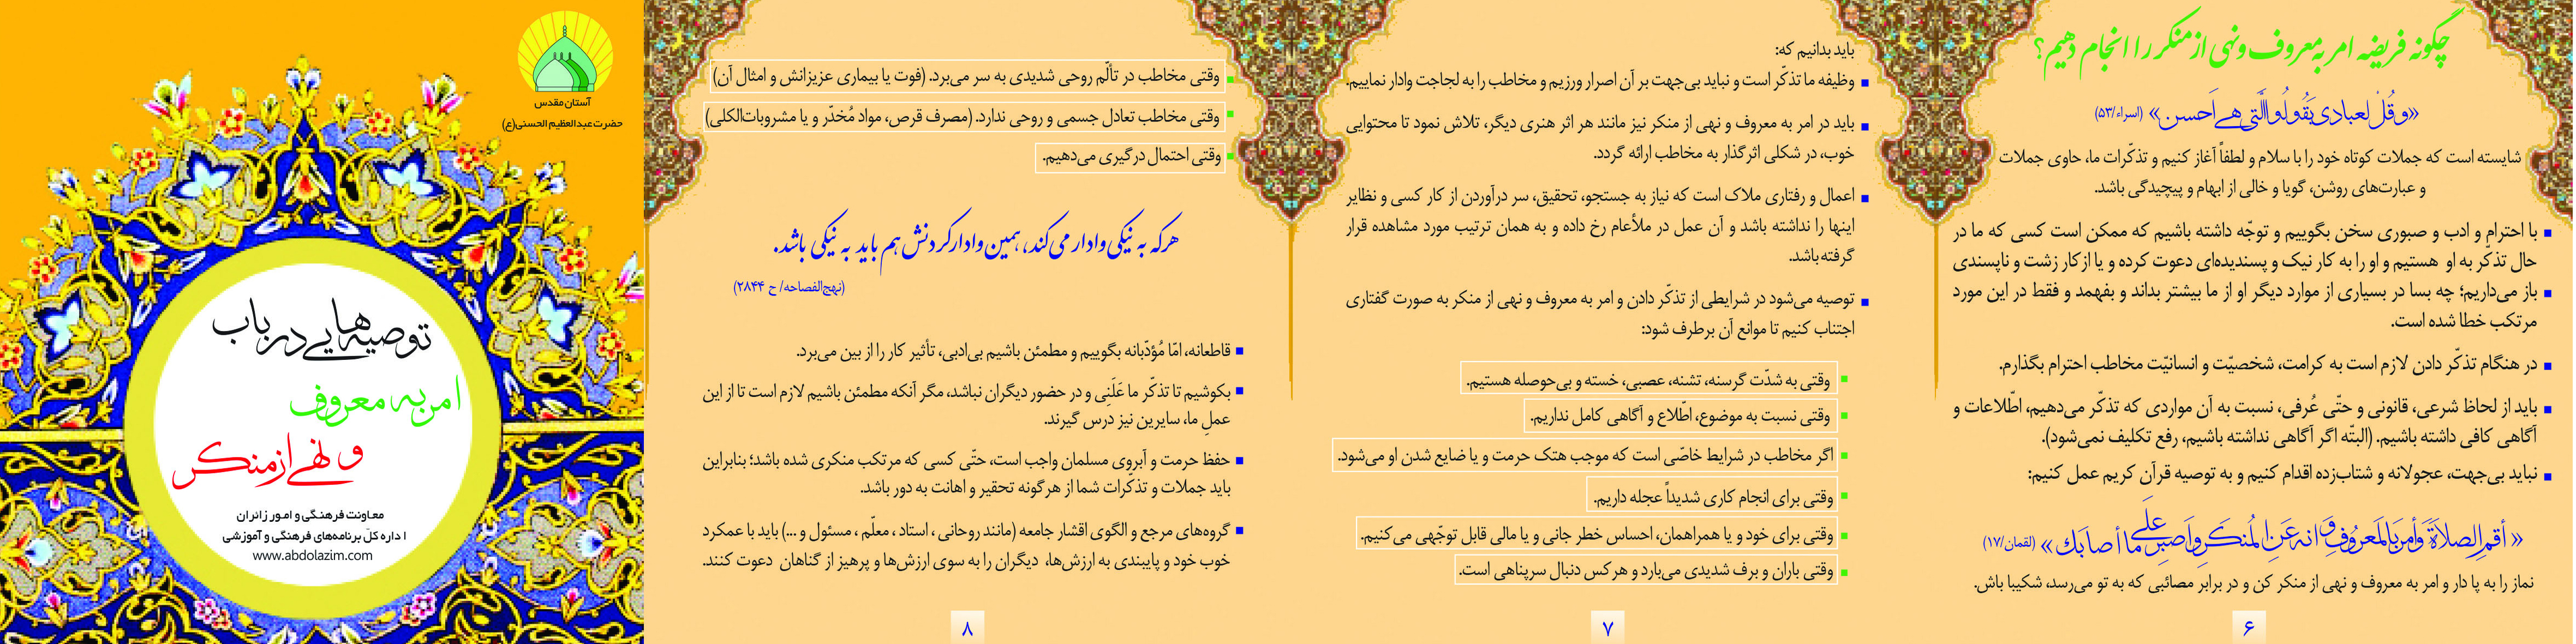 چگونه فریضه امر به معروف و نهی از منکر را انجام دهیم؟
«وقُلْ لعبادی یَقُولُوا الَّتی هی اَحسن» (اسراء/۵۳)
شایسته است که جملات کوتاه خود را با سلام و لطفاً آغاز کنیم و تذکّرات ما، حاوی جملات
و عبارت‌های روشن، گویا و خالی از ابهام و پیچیدگی باشد.
با احترام و ادب و صبوری سخن بگوییم و توجّه داشته باشیم که ممکن است کسی که ما در
حال تذکّر به او هستیم و او را به کار نیک و پسندیده‌ای دعوت کرده و یا از کار زشت و ناپسندی
باز می‌داریم؛ چه بسا در بسیاری از موارد دیگر او از ما بیشتر بداند و بفهمد و فقط در این مورد
مرتکب خطا شده است.
در هنگام تذکّر دادن لازم است به کرامت، شخصیّت و انسانیّت مخاطب احترام بگذارم.
باید از لحاظ شرعی، قانونی و حتّی عُرفی، نسبت به آن مواردی که تذکّر می‌دهیم، اطّلاعات و
آگاهی کافی داشته باشیم. (البتّه اگر آگاهی نداشته باشیم، رفع تکلیف نمی‌شود).
نباید بی‌جهت، عجولانه و شتاب‌زده اقدام کنیم و به توصیه قرآن کریم عمل کنیم:
«أقم الصلاةَ وَأمر بالمَعروُفِ وَ انه عَنِ المُنکَر وَ اَصبِر عَلَی ما أصابَك» (لقمان/۱۷)
نماز را به پا دار و امر به معروف و نهی از منکر کن و در برابر مصائبی که به تو می‌رسد، شکیبا باش.
۶
باید بدانیم که:
وظیفه ما تذکّر است و نباید بی‌جهت بر آن اصرار ورزیم و مخاطب را به لجاجت وادار نماییم.
باید در امر به معروف و نهی از منکر نیز مانند هر اثر هنری دیگر، تلاش نمود تا محتوایی
خوب، در شکلی اثرگذار به مخاطب ارائه گردد.
اعمال و رفتاری ملاک است که نیاز به جستجو، تحقیق، سر درآوردن از کار کسی و نظایر
اینها را نداشته باشد و آن عمل در ملأعام رخ داده و به همان ترتیب مورد مشاهده قرار
گرفته باشد.
توصیه می‌شود در شرایطی از تذکّر دادن و امر به معروف و نهی از منکر به صورت گفتاری
اجتناب کنیم تا موانع آن برطرف شود:
وقتی به شدّت گرسنه، تشنه، عصبی، خسته و بی‌حوصله هستیم.
وقتی نسبت به موضوع، اطّلاع و آگاهی کامل نداریم.
اگر مخاطب در شرایط خاصّی است که موجب هتک حرمت و یا ضایع شدن او می‌شود.
وقتی برای انجام کاری شدیداً عجله داریم.
وقتی برای خود و یا همراهمان، احساس خطر جانی و یا مالی قابل توجّهی می‌کنیم.
وقتی باران و برف شدیدی می‌بارد و هر کس دنبال سرپناهی است.
۷
وقتی مخاطب در تألّم روحی شدیدی به سر می‌برد. (فوت یا بیماری عزیزانش و امثال آن)
وقتی مخاطب تعادل جسمی و روحی ندارد. (مصرف قرص، مواد مُخدّر و یا مشروبات‌الکلی)
وقتی احتمال درگیری می‌دهیم.
هر که به نیکی وادار می‌کند، همین وادار کردنش هم باید به نیکی باشد.
(نهج‌الفصاحه/ ح ۲۸۴۴)
قاطعانه، امّا مُؤدّبانه بگوییم و مطمئن باشیم بی‌ادبی، تأثیر کار را از بین می‌برد.
بکوشیم تا تذکّر ما عَلَنی و در حضور دیگران نباشد، مگر آنکه مطمئن باشیم لازم است تا از این
عملِ ما، سایرین نیز درس گیرند.
حفظ حرمت و آبروی مسلمان واجب است، حتّی کسی که مرتکب منکری شده باشد؛ بنابراین
باید جملات و تذکّرات شما از هرگونه تحقیر و اهانت به دور باشد.
گروه‌های مرجع و الگوی اقشار جامعه (مانند روحانی ، استاد ، معلّم ، مسئول و ...) باید با عمکرد
خوب خود و پایبندی به ارزش‌ها، دیگران را به سوی ارزش‌ها و پرهیز از گناهان دعوت کنند.
۸
آستان مقدس
حضرت عبدالعظیم الحسنی(ع)
توصیه‌هایی در باب
امر به معروف
و نهی از منکر
معاونت فرهنگی و امور زائران
اداره کلّ برنامه‌های فرهنگی و آموزشی
www.abdolazim.com